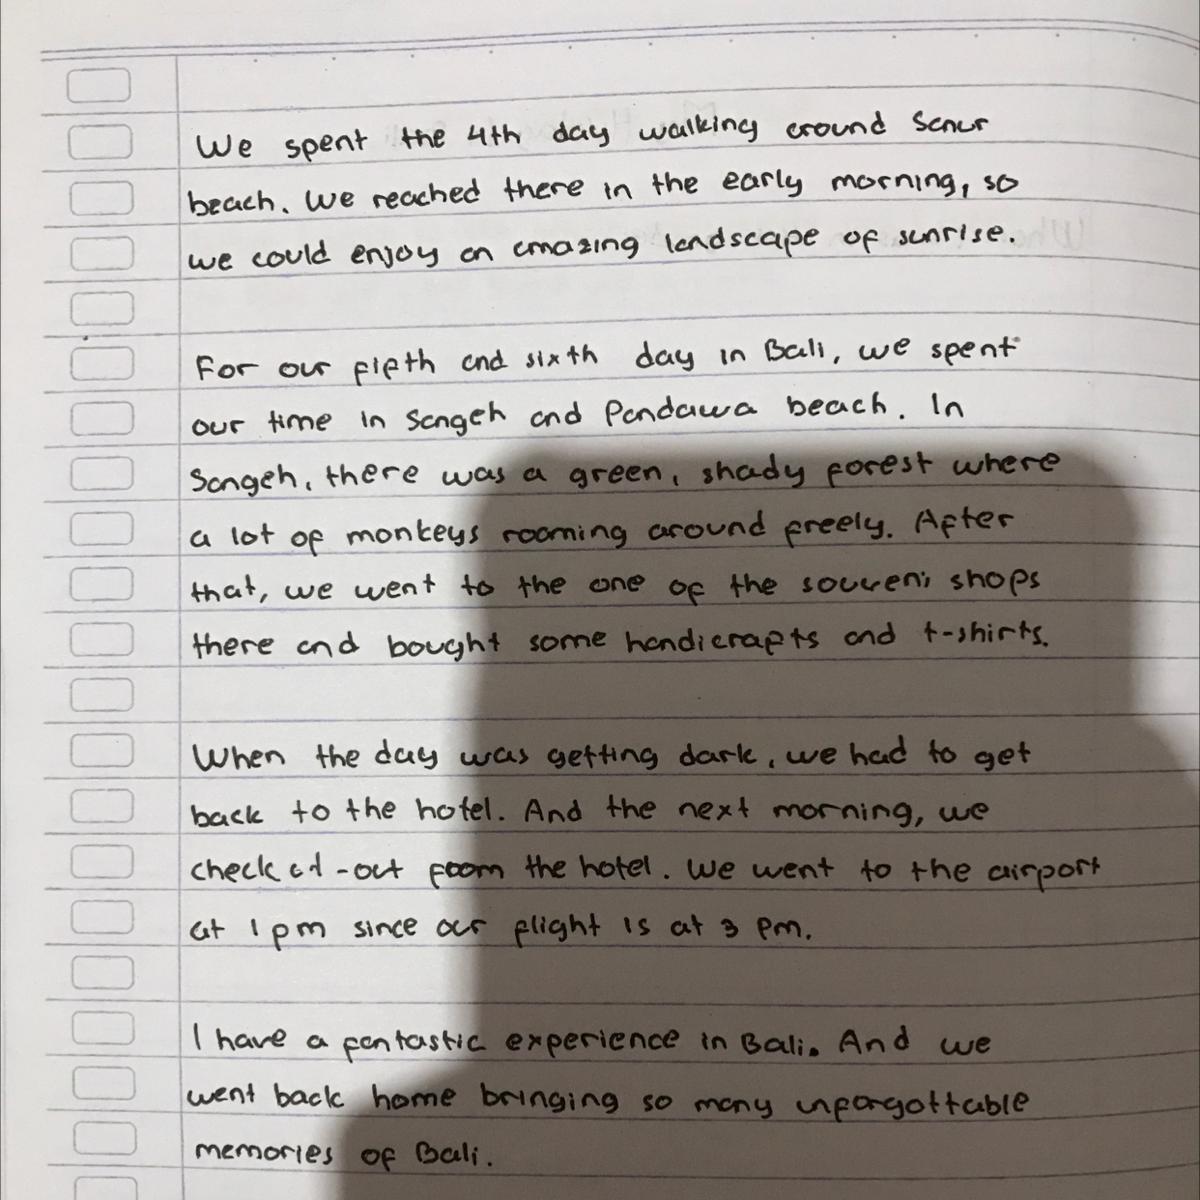 We spent the 4th day walking around Sanur
beach. We reached there in the early morning, so
we could enjoy an amazing landscape of sunrise.
For our fifth and sixth day in Bali, we spent
our time in Sangeh and Pandawa beach. In
Sangeh, there was a green, shady forest where
a lot of monkeys rooming around freely. After
that, we went to the one of the souveni shops
there and bought some handicrafts and t-shirts.
When the day was getting dark, we had to get
back to the hotel. And the next morning, we
checked-out foom the hotel. We went to the airport
at 1 pm since our flight is at 3 pm.
I have a fantastic experience in Bali. And we
went back home bringing so many unforgottable
memories of Bali.